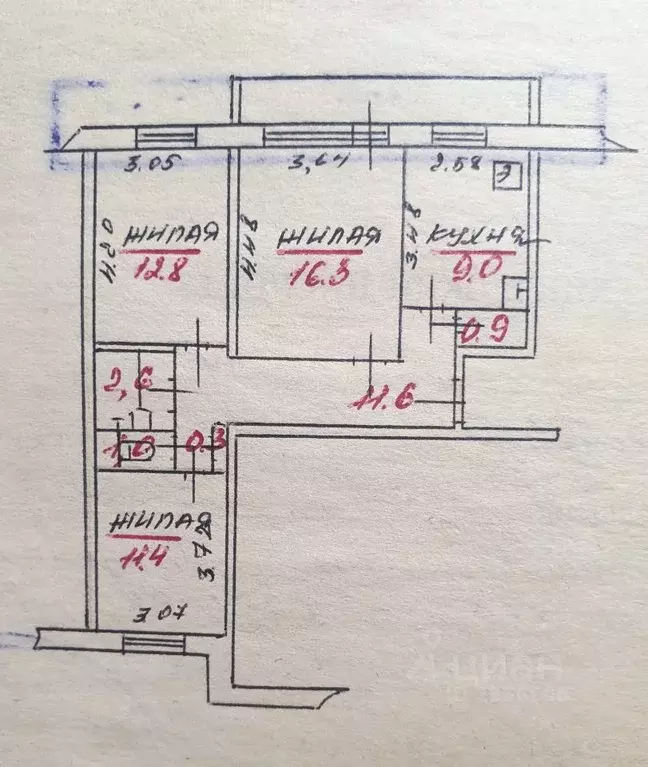 3.05
3,64
2.58
Э
4.20
ЖИЛАЯ
12.8
4.48
ЖИЛАЯ
16.3
3.48
КУХНЯ
9.0
Т
0.9
2,6
11.6
1.0
0.3
ЖИЛАЯ
11.4
3.72
3.07
циан